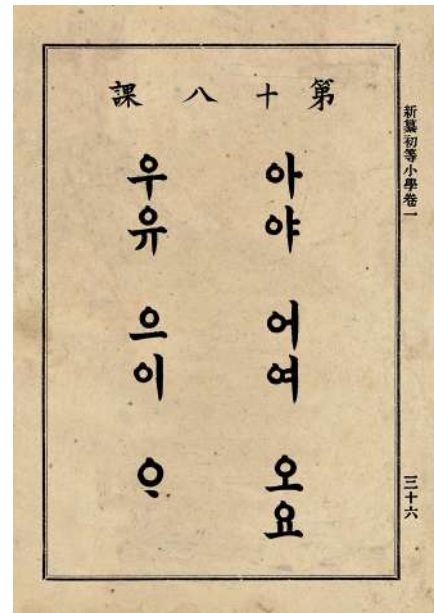 新纂初等小學卷一
第十八課
아야 어여 오요
우유 으이 ᄋᆞ
三十六